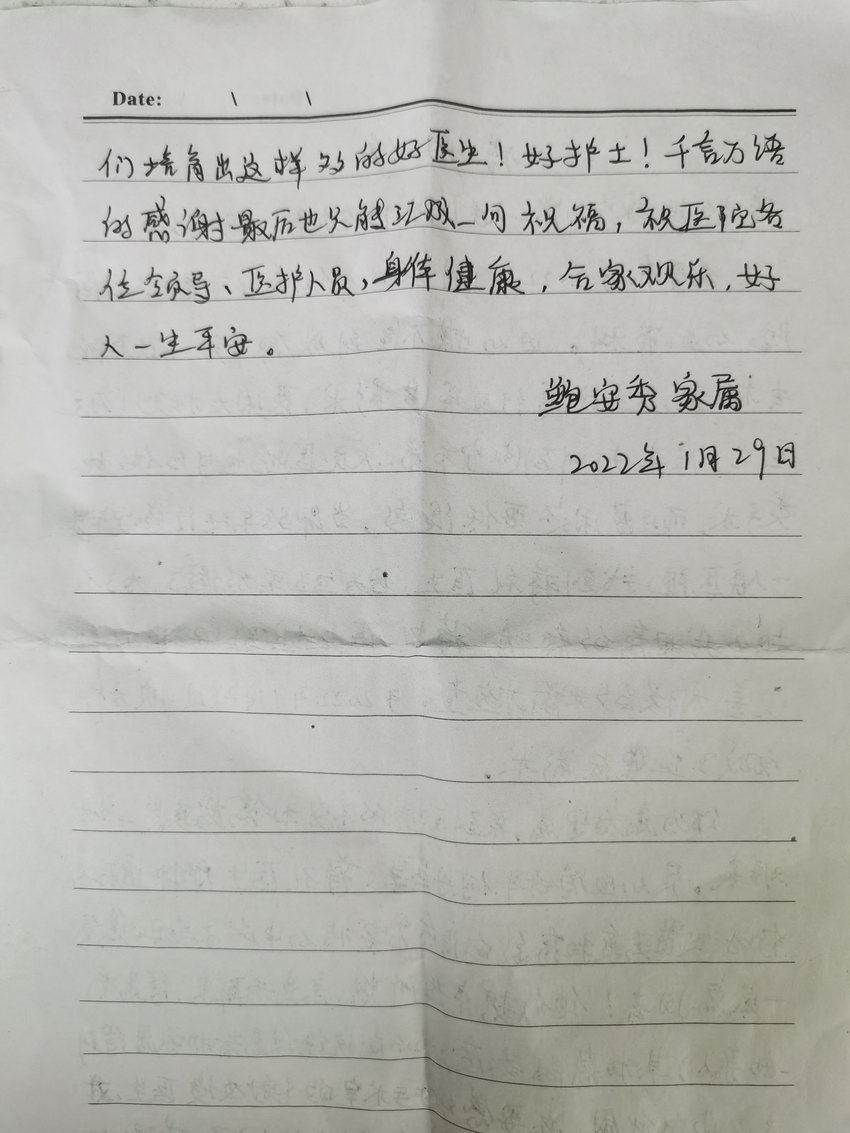 Date: \ \
们培育出这样多的好医生！好护士！千言万语
的感谢最后也只能汇成一句祝福，祝医院各
位领导、医护人员，身体健康，合家观乐，好
人一生平安。
鲍安秀家属
2022年1月29日